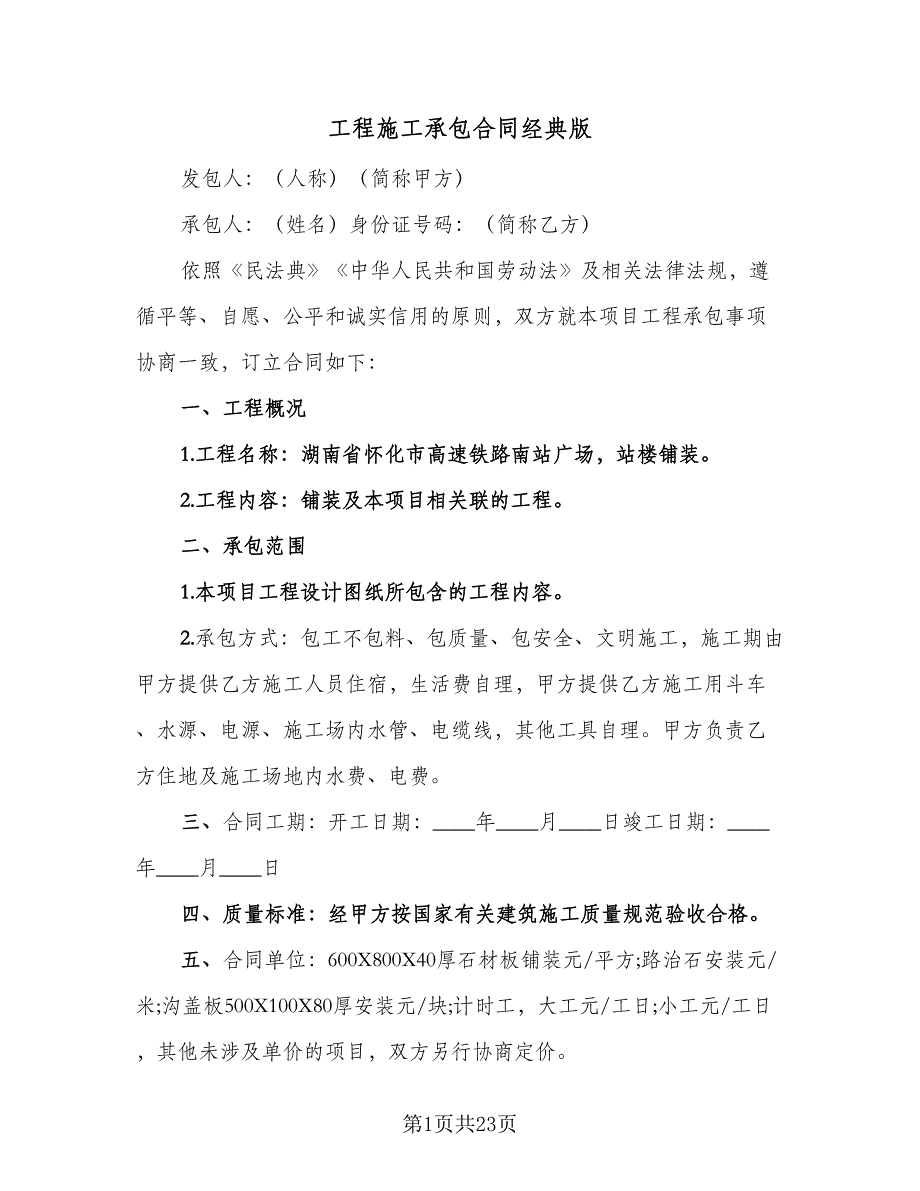 工程施工承包合同经典版
发包人：（人称）（简称甲方）
承包人：（姓名）身份证号码：（简称乙方）
依照《民法典》《中华人民共和国劳动法》及相关法律法规，遵
循平等、自愿、公平和诚实信用的原则，双方就本项目工程承包事项
协商一致，订立合同如下：
一、工程概况
1.工程名称：湖南省怀化市高速铁路南站广场，站楼铺装。
2.工程内容：铺装及本项目相关联的工程。
二、承包范围
1.本项目工程设计图纸所包含的工程内容。
2.承包方式：包工不包料、包质量、包安全、文明施工，施工期由
甲方提供乙方施工人员住宿，生活费自理，甲方提供乙方施工用斗车
、水源、电源、施工场内水管、电缆线，其他工具自理。甲方负责乙
方住地及施工场地内水费、电费。
三、合同工期：开工日期：____年____月____日竣工日期：____
年____月____日
四、质量标准：经甲方按国家有关建筑施工质量规范验收合格。
五、合同单位：600X800X40厚石材板铺装元/平方;路治石安装元/
米;沟盖板500X100X80厚安装元/块;计时工，大工元/工日;小工元/工日
，其他未涉及单价的项目，双方另行协商定价。
第1页共23页